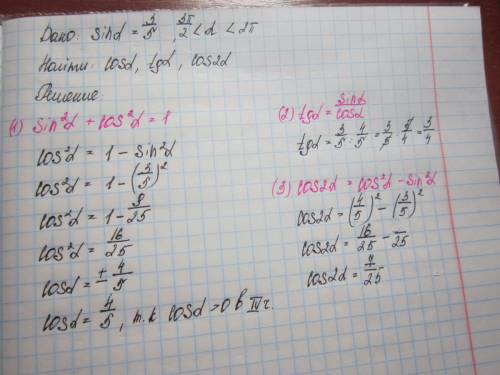 Дано: sinα = 3/5, 3π/2 < α < 2π
Найти: cosα, tgα, cos2α
Решение:
(1) sin²α + cos²α = 1
cos²α = 1 - sin²α
cos²α = 1 - (3/5)²
cos²α = 1 - 9/25
cos²α = 16/25
cosα = ± 4/5
cosα = 4/5, т.к cosα > 0 в IV ч.
(2) tgα = sinα/cosα
tgα = 3/5 : 4/5 = 3/5 · 5/4 = 3/4
(3) cos2α = cos²α - sin²α
cos2α = (4/5)² - (3/5)²
cos2α = 16/25 - /25
cos2α = 7/25